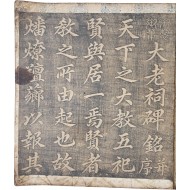 大老祠碑銘并序
天下之大教五祀
賢與居一焉賢者
教之所由起也故
燔燎薌以報其